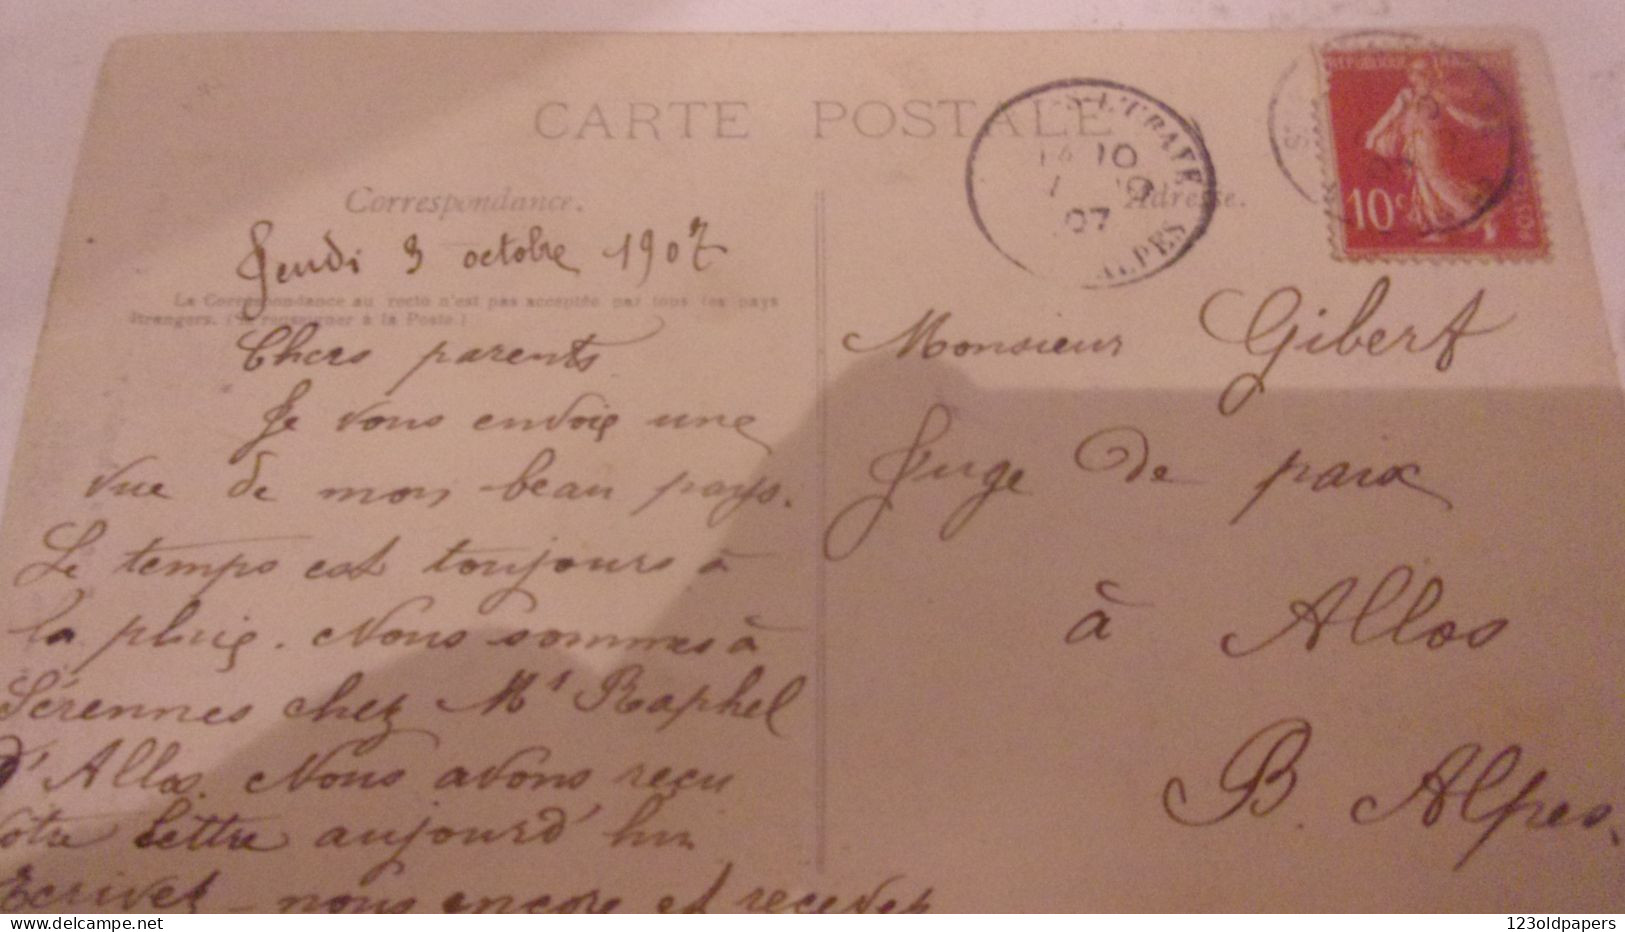 CARTE POSTALE
Correspondance.
Jeudi 3 octobre 1907
La Correspondance au recto n'est pas acceptée par tous les pays
étrangers. (Se renseigner à la Poste.)
Chers parents
Je vous envoie une
vue de mon beau pays.
Le temps est toujours à
la pluie. Nous sommes à
Sérennes chez Mr Raphel
d'Allos. Nous avons reçu
votre lettre aujourd'hui
Ecrivez-nous encore et recevez
10
07
ALPES
Adresse.
REPUBLIQUE FRANÇAISE
10c
POSTES
Monsieur Gibert
Juge de paix
à Allos
B. Alpes.
123oldpapers